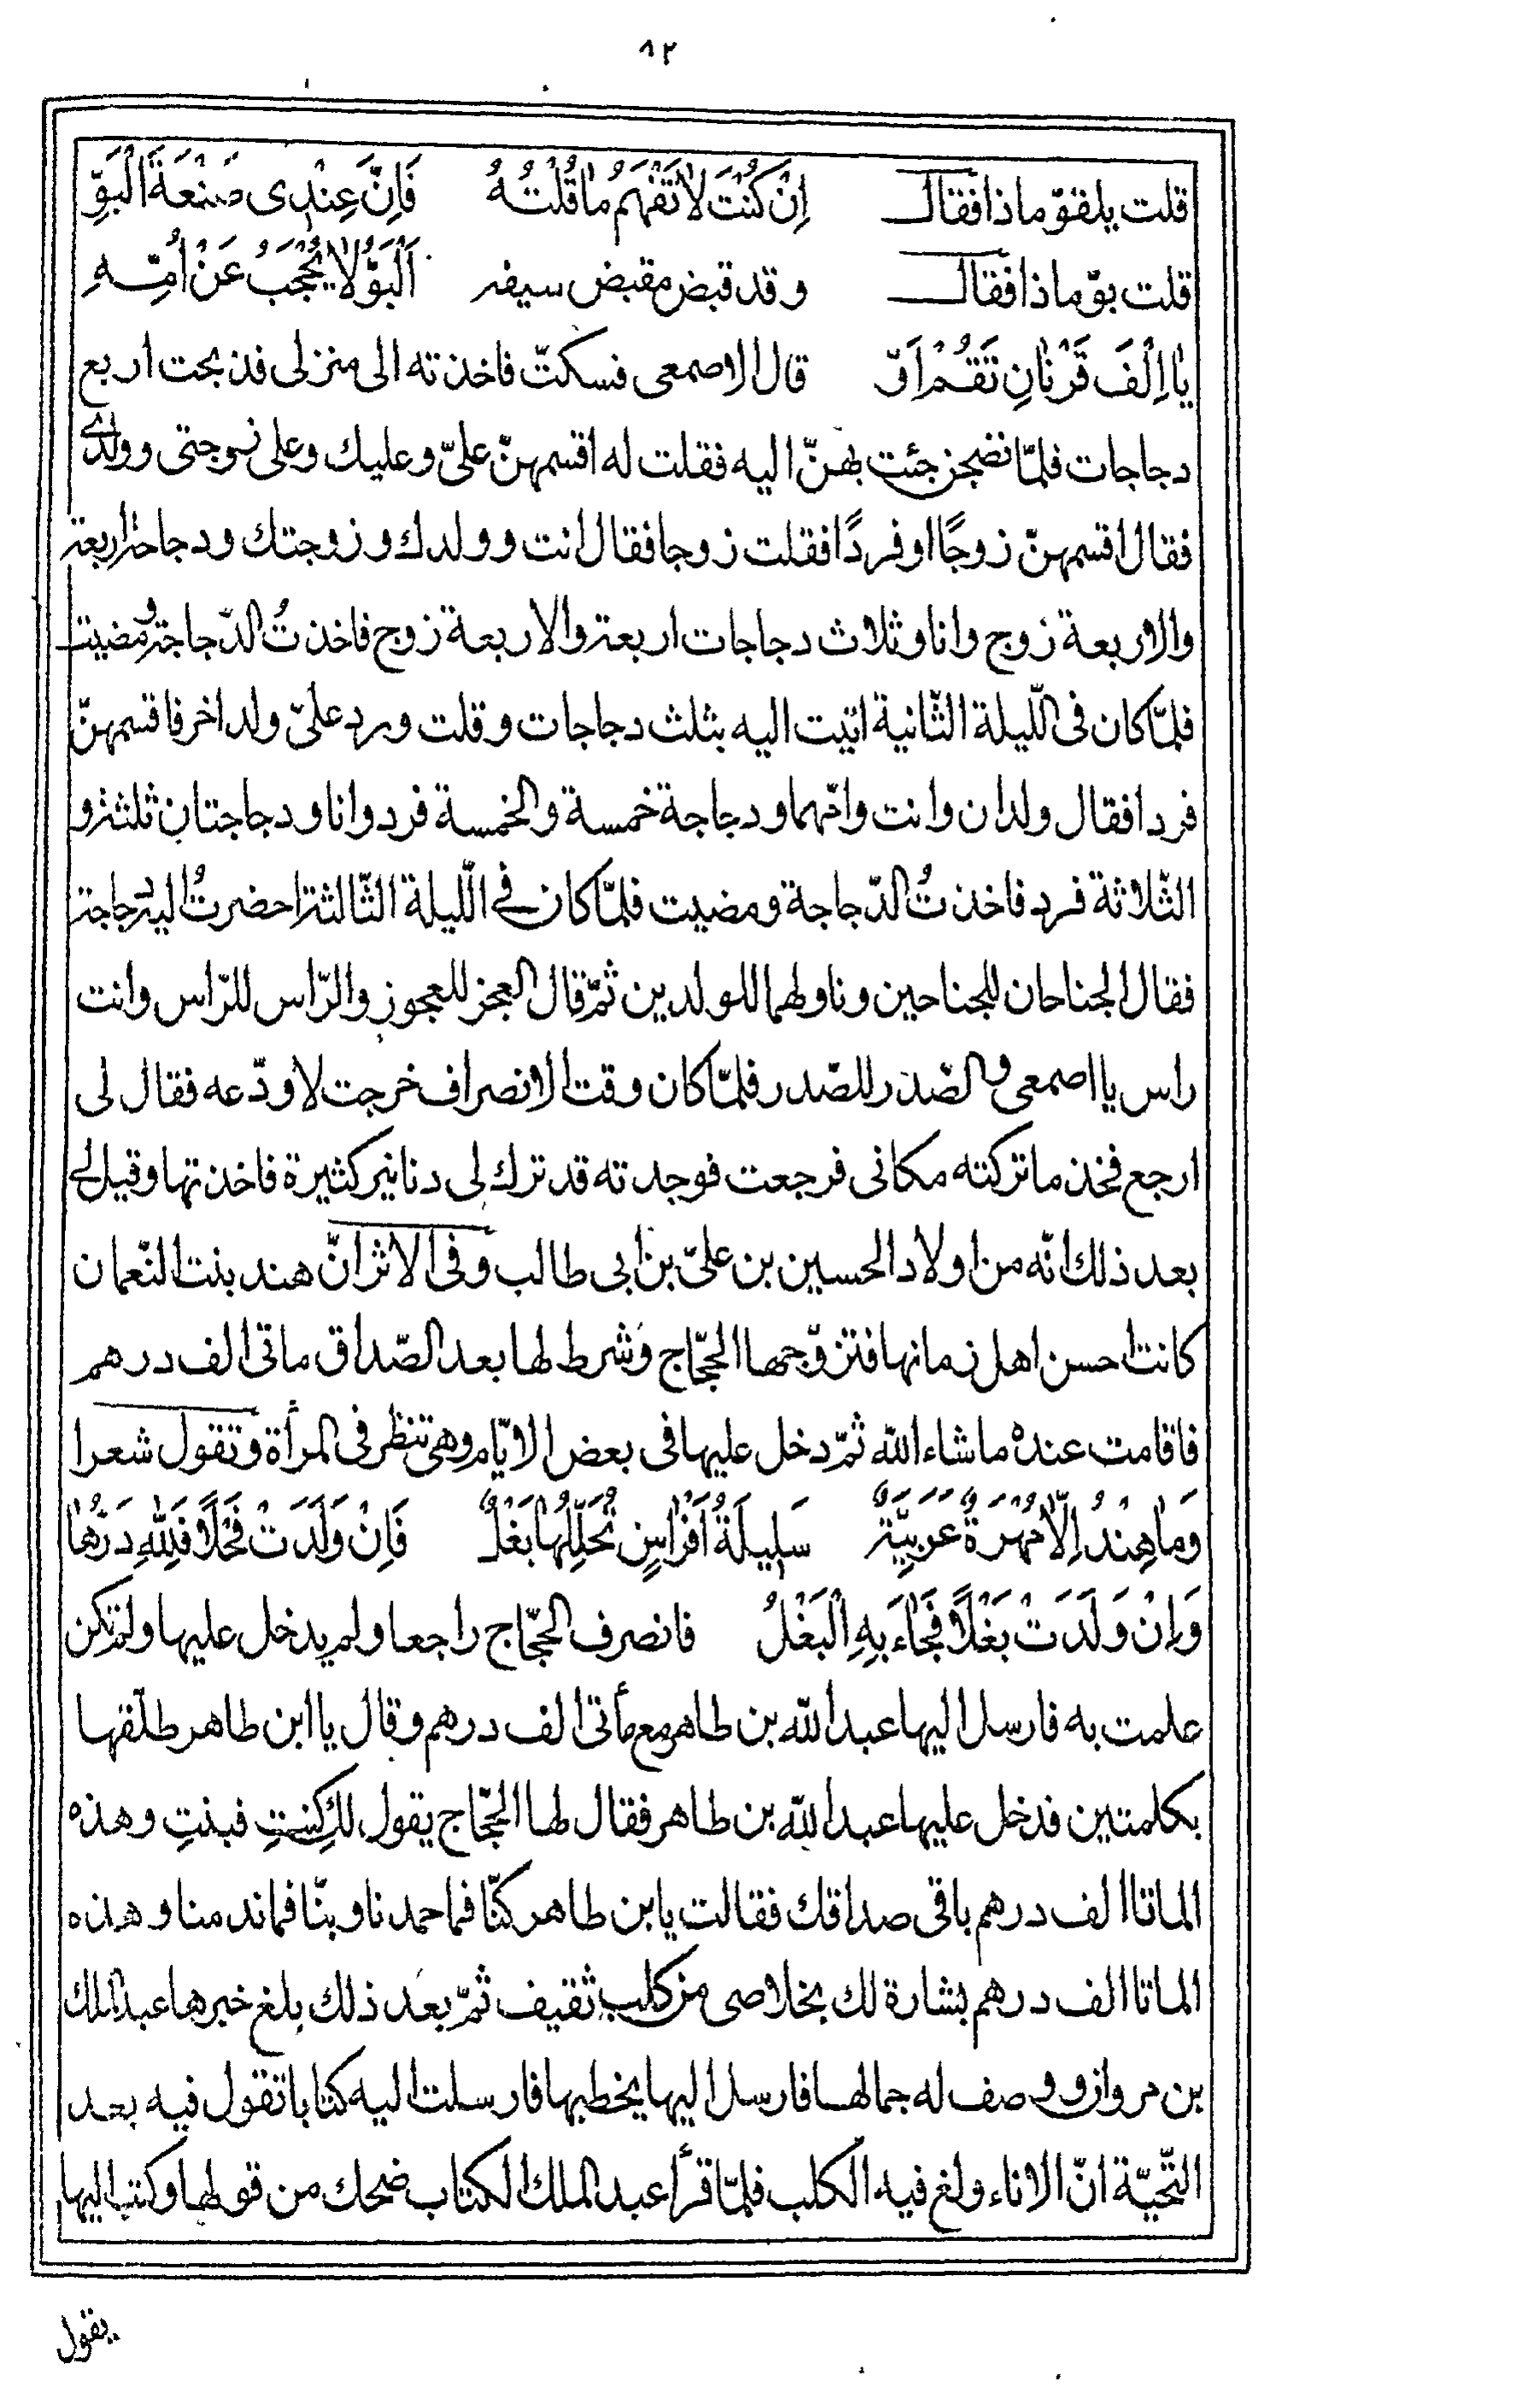 ٨٢
قلت يلقوّ ماذا فقال اِنْ كُنْتَ لاٰ تَفْهَمُ ماٰ قُلْتُهُ فَاِنَّ عِنْدِى صَنْعَةَ الْبَوِّ
قلت بوّ ماذا فقال وقد قبض مقبض سيفه اَلْبَوُّ لاٰ يُحْجَبُ عَنْ اُمِّهِ
يٰا اِلَفَ قَرْنٰانِ تَقُمْ اَوّ قال الاصمعى فسكتّ فاخذته الى منزلى فذبحت اربع
دجاجات فلمّا نضجن جئت بهنّ اليه فقلت له اقسمهنّ علىّ وعليك وعلى زوجتى وولدى
فقال اقسمهنّ زوجًا او فردًا فقلت زوجا فقال انت وولدك وزوجتك ودجاجة اربعة
والاربعة زوج وانا وثلاث دجاجات اربعة والاربعة زوج فاخذتُ الدّجاجة ومضيت
فلمّا كان فى اللّيلة الثّانية اتيت اليه بثلث دجاجات وقلت ورد علىّ ولد اخر فاقسمهنّ
فردا فقال ولدان وانت وامّهما ودجاجة خمسة والخمسة فرد وانا ودجاجتان ثلثة و
الثّلاثة فرد فاخذتُ الدّجاجة ومضيت فلمّا كان فى اللّيلة الثّالثة احضرتُ اليه دجاجة
فقال الجناحان للجناحين وناولهما للولدين ثمّ قال العجز للعجوز والرّاس للرّاس وانت
راس يا اصمعى والصّدر للصّدر فلمّا كان وقت الانصراف خرجت لاودّعه فقال لى
ارجع فخذ ما تركته مكانى فرجعت فوجدته قد ترك لى دنانير كثيرة فاخذتها وقيل لى
بعد ذلك انّه من اولاد الحسين بن علىّ بن ابى طالب وفى الاثر انّ هند بنت النّعمان
كانت احسن اهل زمانها فتزوّجها الحجّاج وشرط لها بعد الصّداق ماتى الف درهم
فاقامت عنده ماشاء الله ثمّ دخل عليها فى بعض الايّام وهى تنظر فى المرأة وتقول شعرا
وَمٰا هِنْدُ اِلّاٰ مُهْرَةٌ عَرَبِيَّةٌ سَلِيلَةُ اَفْرٰاسٍ تُحَلِّلُهٰا بَغْلٌ فَاِنْ وَلَدَتْ فَحْلًا فَلِلّٰهِ دَرُّهٰا
وَاِنْ وَلَدَتْ بَغْلًا فَجٰاءَ بِهِ الْبَغْلُ فانصرف الحجّاج راجعا ولم يدخل عليها ولم تكن
علمت به فارسل اليها عبد الله بن طاهر مع مأتى الف درهم وقال يا ابن طاهر طلّقها
بكلمتين فدخل عليها عبد الله بن طاهر فقال لها الحجّاج يقول لكِ كنتِ فبنتِ وهذه
الماتا الف درهم باقى صداقك فقالت يابن طاهر كنّا فما حمدنا وبنّا فما ندمنا وهذه
الماتا الف درهم بشارة لك بخلاصى من كلب ثقيف ثمّ بعد ذلك بلغ خبرها عبد الملك
بن مروان ووصف له جمالها فارسل اليها يخطبها فارسلت اليه كتابا تقول فيه بعد
التّحيّة انّ الاناء ولغ فيه الكلب فلمّا قرأ عبد الملك الكتاب ضحك من قولها وكتب اليها
يقول